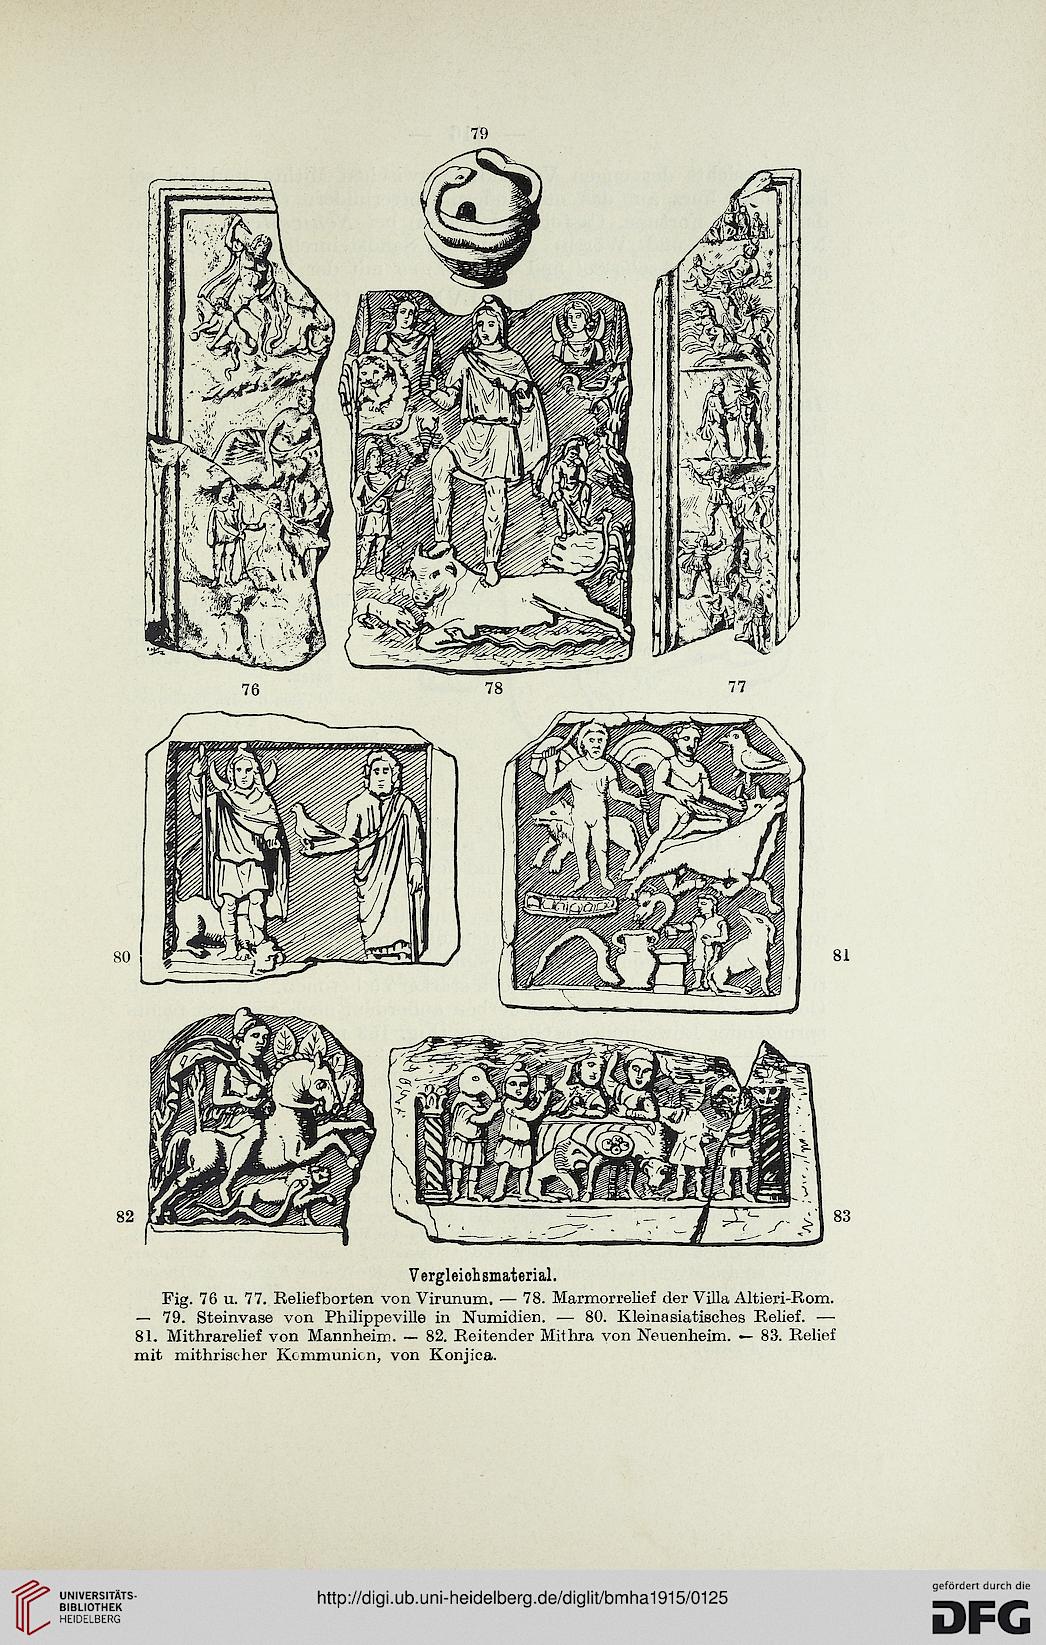 79
76
78
77
80
81
82
83
Vergleichsmaterial.
Fig. 76 u. 77. Reliefborten von Virunum. — 78. Marmorrelief der Villa Altieri-Rom.
— 79. Steinvase von Philippeville in Numidien. — 80. Kleinasiatisches Relief. —
81. Mithrarelief von Mannheim. — 82. Reitender Mithra von Neuenheim. — 83. Relief
mit mithrischer Kommunion, von Konjica.
UNIVERSITÄTS-
BIBLIOTHEK
HEIDELBERG
http://digi.ub.uni-heidelberg.de/diglit/bmha1915/0125
gefördert durch die
DFG